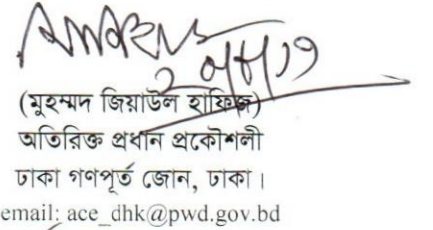 (মুহম্মদ জিয়াউল হাফিজ)
অতিরিক্ত প্রধান প্রকৌশলী
ঢাকা গণপূর্ত জোন, ঢাকা।
email: ace_dhk@pwd.gov.bd